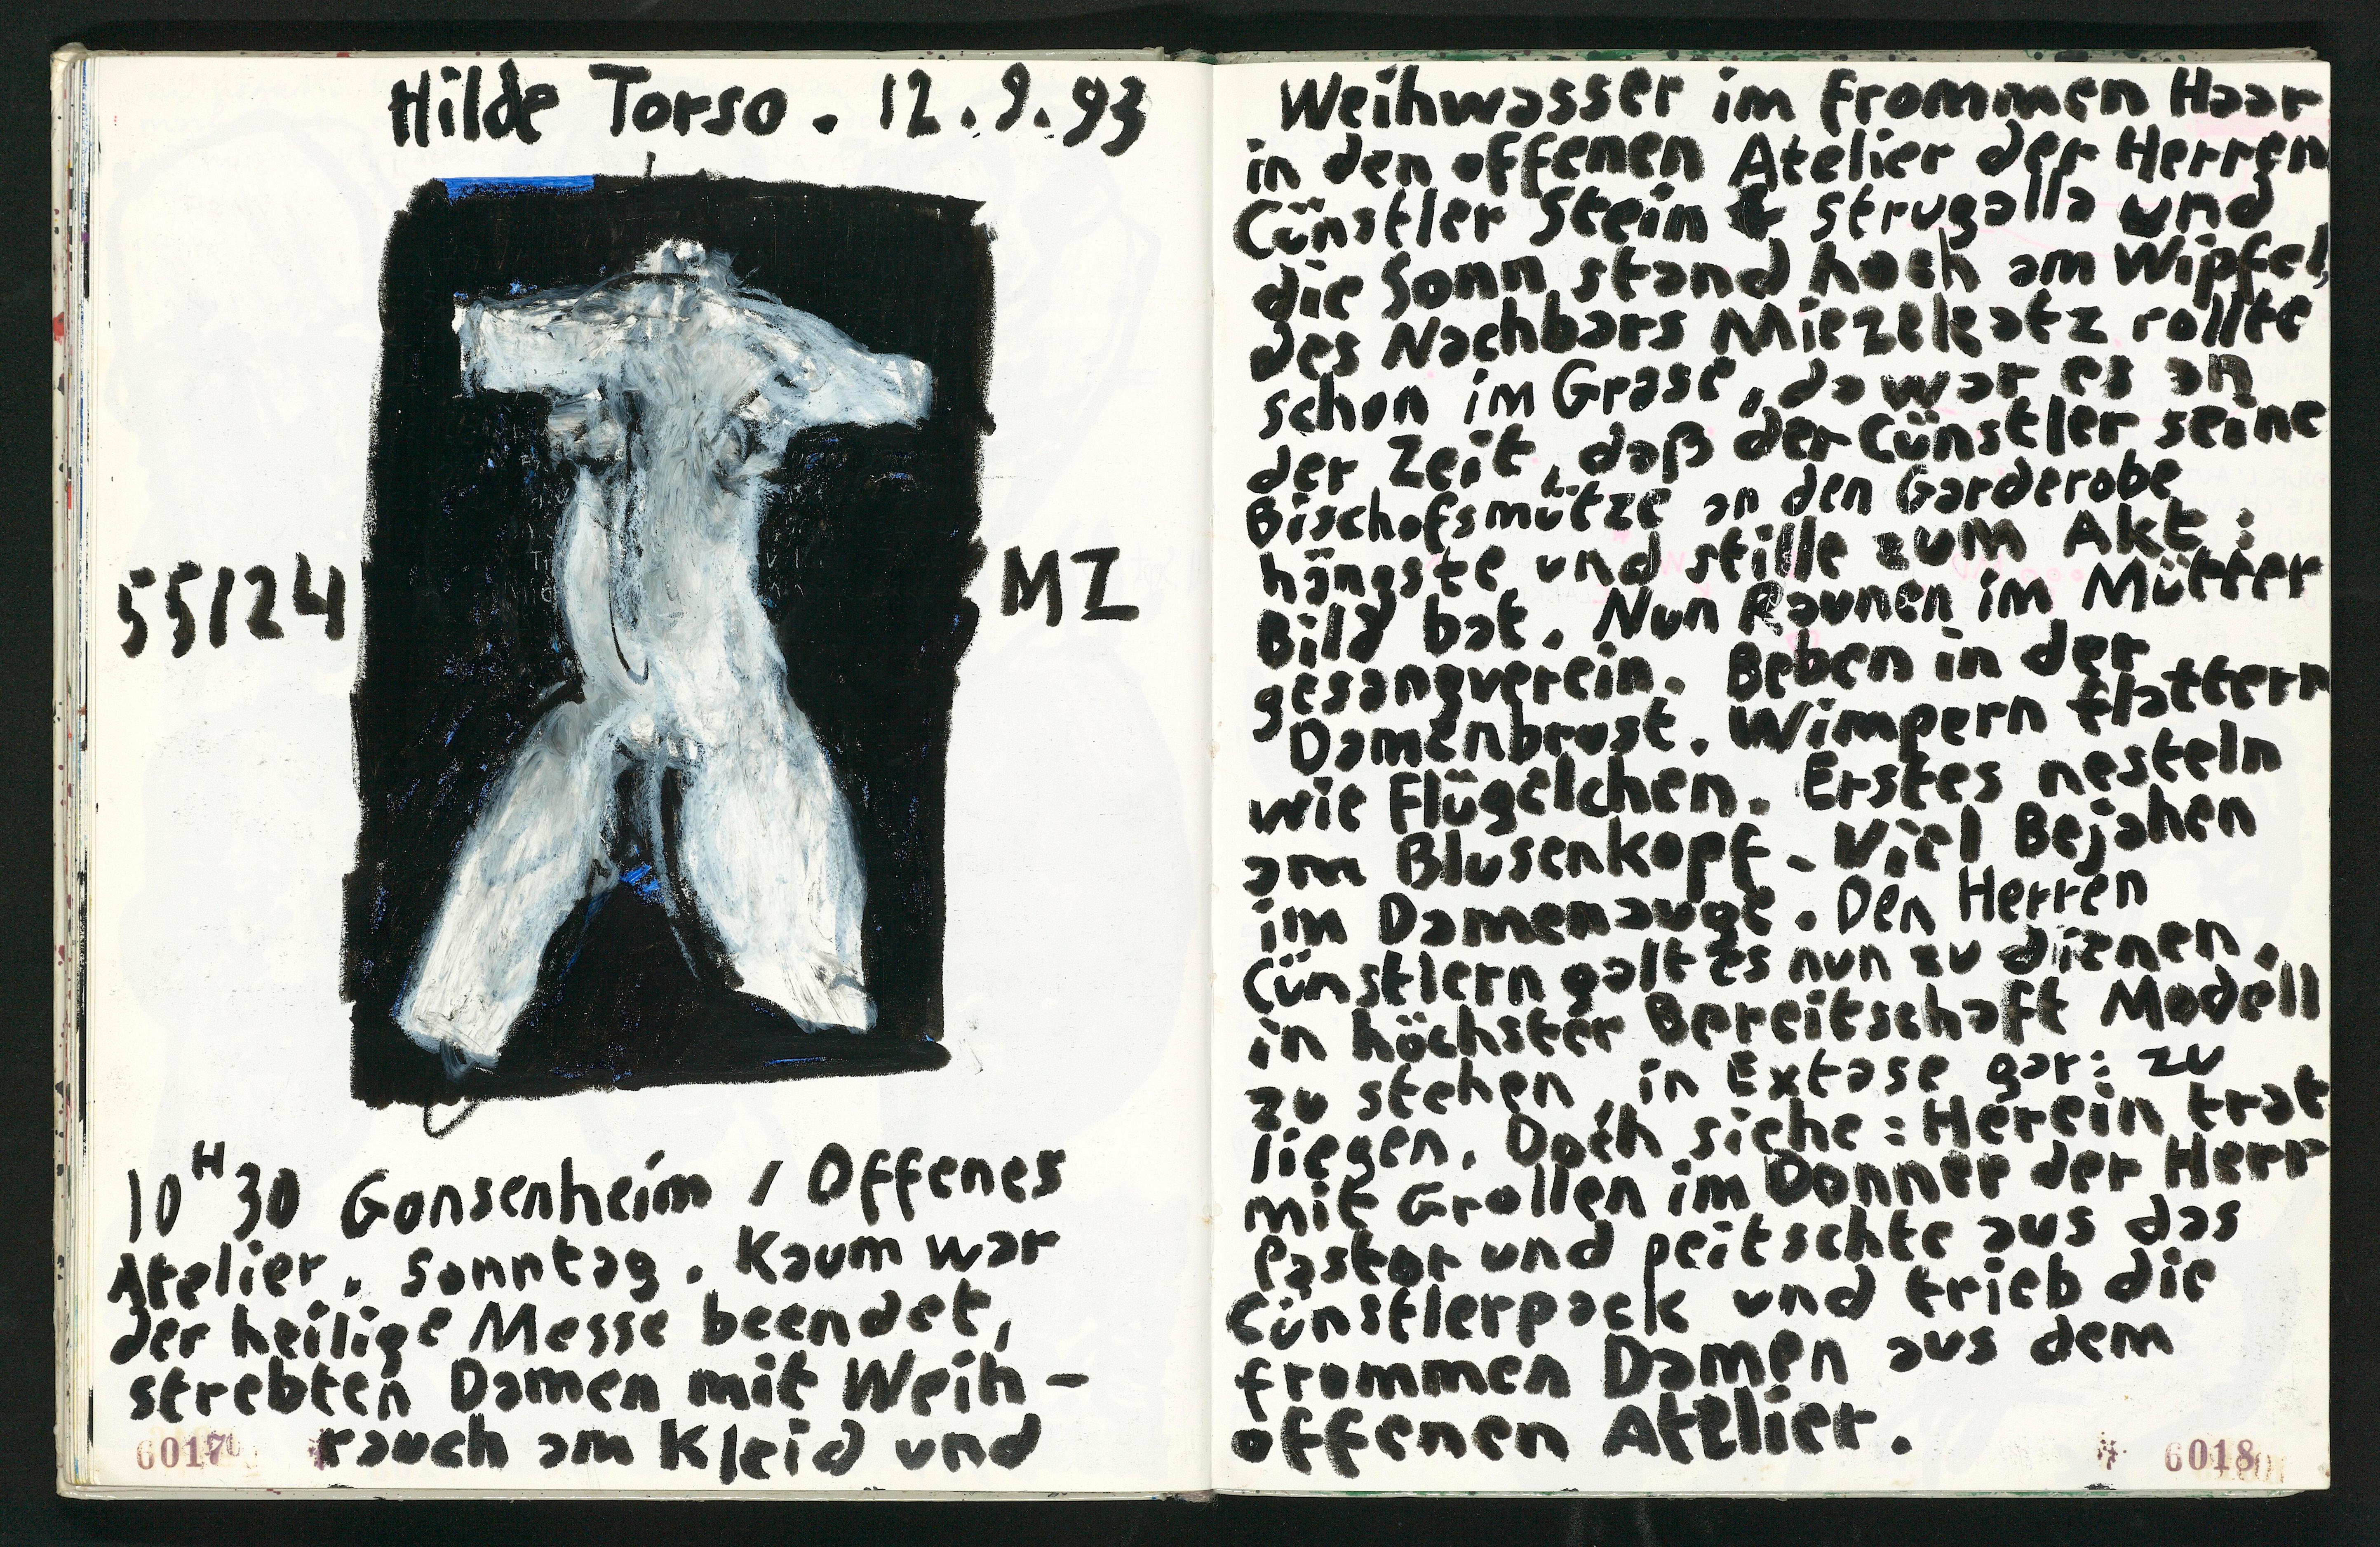 Hilde Torso. 12.9.93
55124
MZ
10H30 Gonsenheim / Offenes
Atelier. Sonntag. Kaum war
der heilige Messe beendet,
strebten Damen mit Weih-
rauch am Kleid und
6017
Weihwasser im frommen Haar
in den offenen Atelier der Herren
Cünstler Stein & Strugalla und
die Sonn stand hoch am Wipfel,
des Nachbars Miezekatz rollte
schon im Grase, da war es an
der Zeit, daß der Cünstler seine
Bischofsmütze an den Garderobe
hängste und stille zum Akt:
Bild bat. Nun Raunen im Mütter
gesangverein. Beben in der
Damenbrust. Wimpern flattern
wie Flügelchen. Erstes nesteln
am Blusenkopf. Viel Bejahen
im Damenauge. Den Herren
Cünstlern galt es nun zu dienen.
in höchster Bereitschaft Modell
zu stehen, in Extase gar: zu
liegen. Doch siehe: Herein trat
mit Grollen im Donner der Herr
Pastor und peitschte aus das
Cünstlerpack und trieb die
frommen Damen aus dem
offenen Atelier.
6018